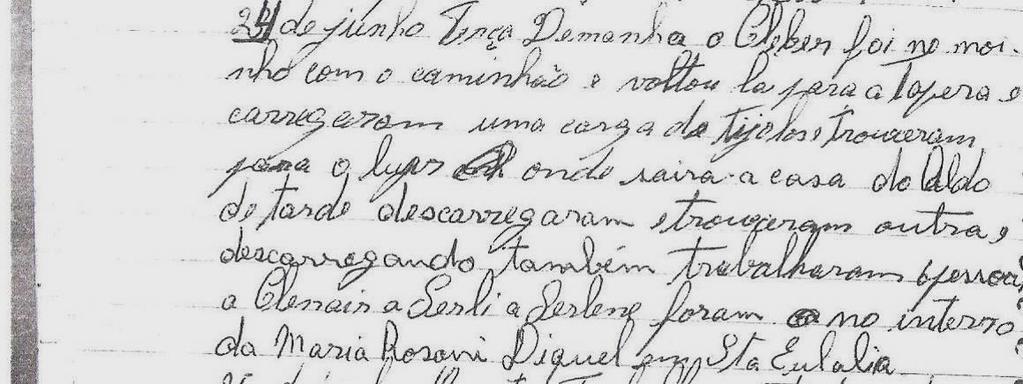 24 de junho Terça Demanha o Cleber foi no moi-
nho com o caminhão e voltou la para a Tapera e
carregaram uma carga de tijolos e trouceram
para o lugar onde saira a casa do Aldo
de tarde descarregaram e trouceram outra e
descarregando também trabalharam 6 pessoa
a Clenair a Serli a Serlene foram no interro
da Maria Rosani Diquel em Sta Eulalia